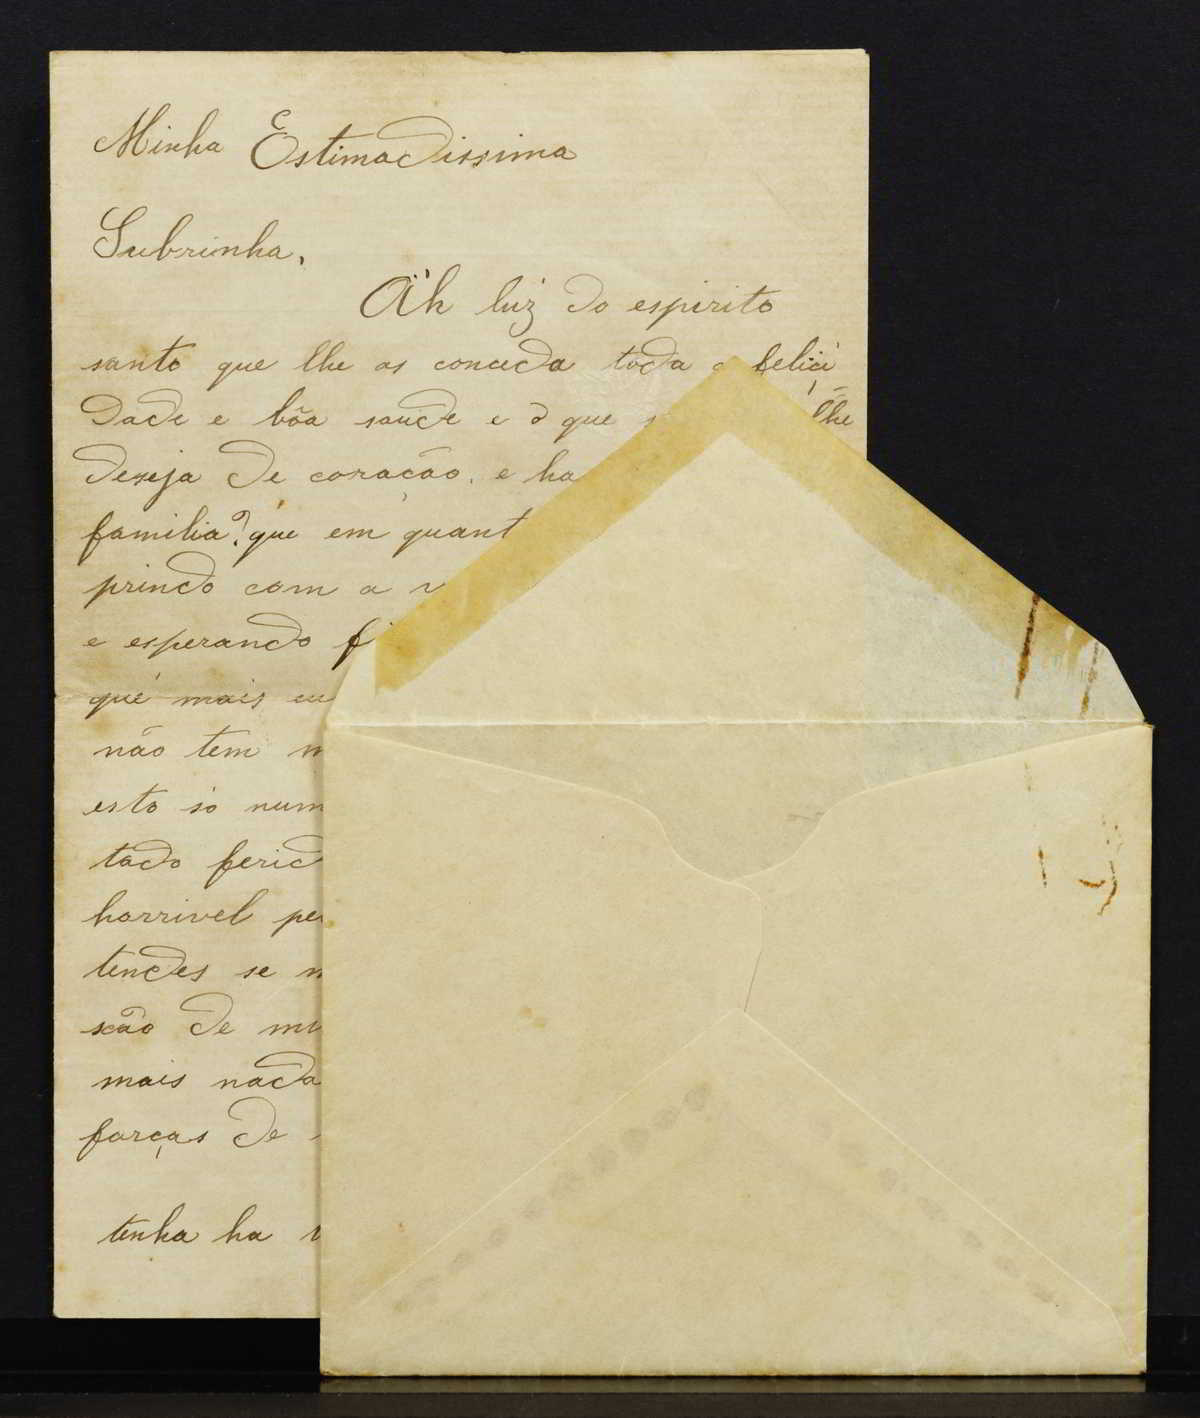 Minha Estimadissima
Subrinha,
Áh luiz do espirito
santo que lhe os conceda toda a feliçi
dade e bôa saude e o que lhe
deseja de coração. e ha
familia? que em quant
prindo com a
e esperando
que mais eu
não tem
esto só num
tado ferid
horrivel pe
tendes se
são de mu
mais nada
forças de
tenha ha